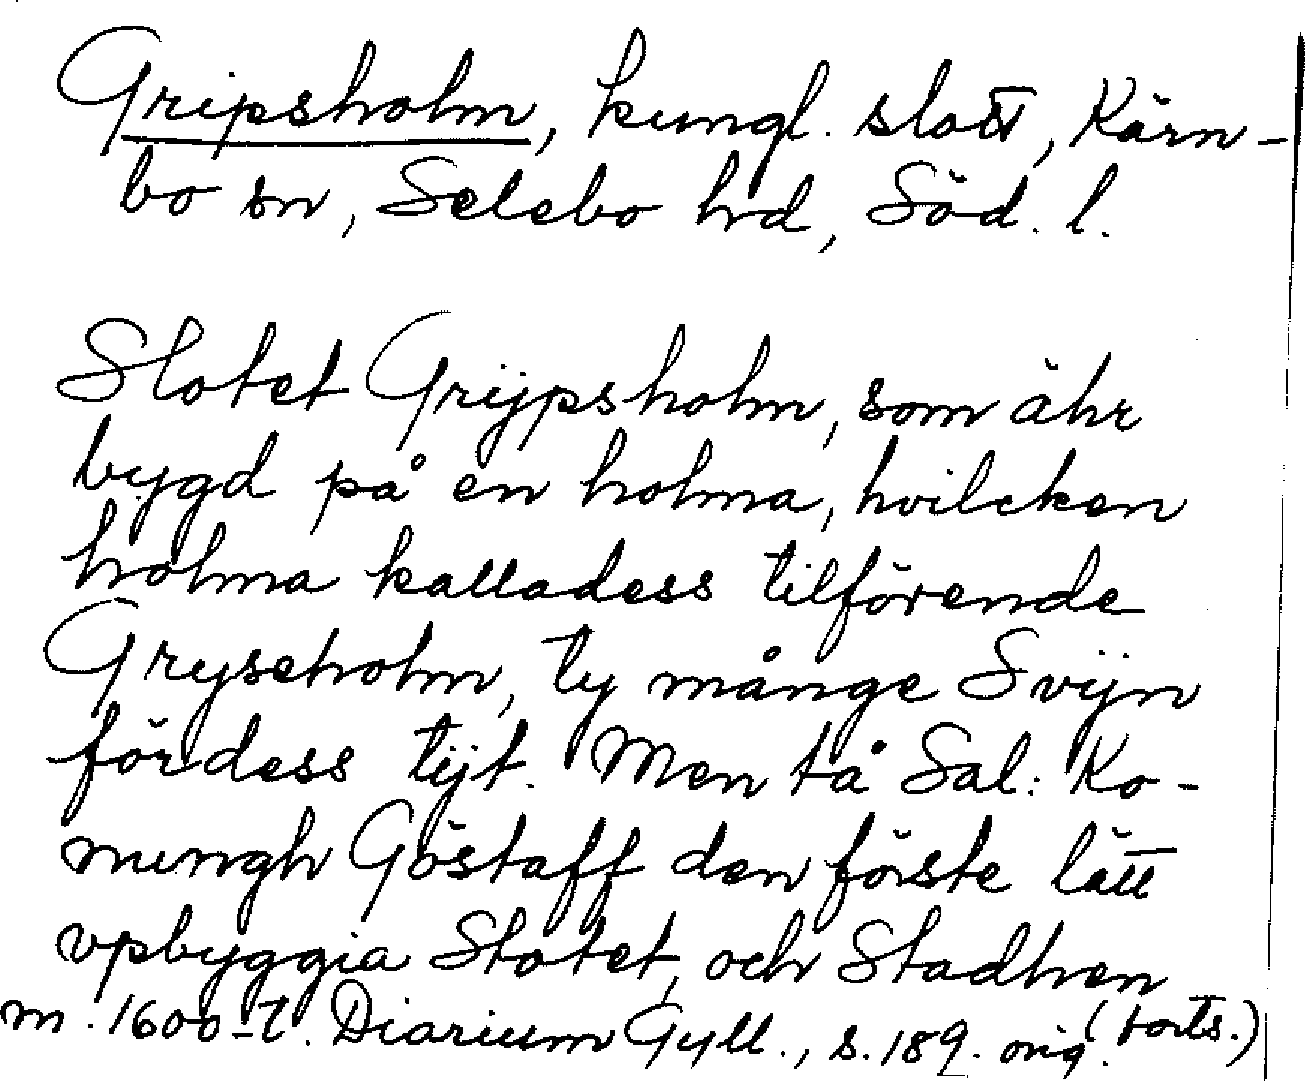 Gripsholm, kungl. slott, Kärn-
bo sn, Selebo hd, Söd. l.
Slotet Grijpsholm, som ähr
bygd på en holma, hvilcken
holma kalladess tilförende
Gryseholm, ty månge Svijn
fördess tijt. Men tå Sal: Ko-
nungh Göstaff den förste lätt
vpbyggia Slotet, och Stadhen
m. 1600-t. Diarium Gyll., s. 189. orig. (forts.)